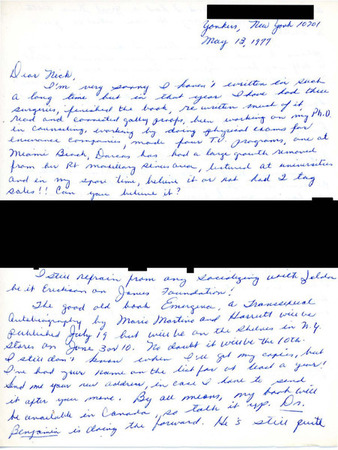 Yonkers, New York 10701
May 13, 1977
Dear Nick,
I'm very sorry I haven't written in such
a long time but in that year I have had three
surgeries, finished the book, re written most of it,
read and corrected galley proofs, been working on my Ph.D.
in counseling, working by doing physical exams for
insurance companies, made four TV programs, one at
Miami Beach, Dareas has had a large growth removed
from her Rt maxillary sinus area, lectured at universities
and in my spare time, believe it or not had 2 tag
sales!! Can you believe it?
I still refrain from any socializing with Zelda
be it Erickson or James Foundation!
The good old book Emergence, a Transsexual
Autobiography by Mario Martino and Harriett will be
published July 19 but will be on the shelves in N.Y.
stores on June 3 or 10. No doubt it will be the 10th.
I still don't know when I'll get my copies, but
I've had your name on the list for at least a year!
Send me your new address, in case I have to send
it after your move. By all means, my book will
be available in Canada, so talk it up. Dr.
Benjamin is doing the forward. He's still quite